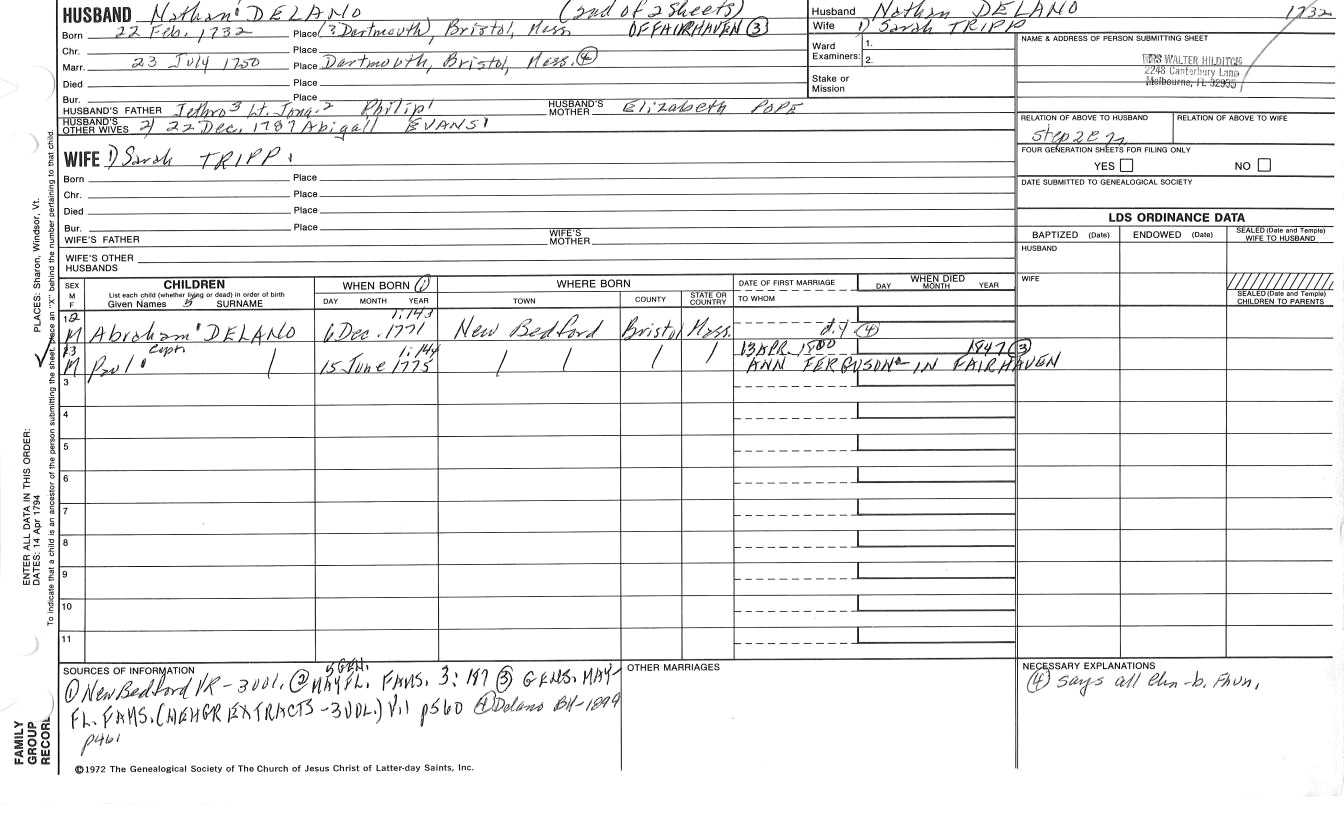 HUSBAND Nathan' DELANO (2nd of 2 sheets)
Born 22 Feb. 1732 Place (3 Dartmouth), Bristol, Mass OF FAIRHAVEN (3)
Chr. Place
Marr. 23 July 1750 Place Dartmouth, Bristol, Mass. (4)
Died Place
Bur. Place
HUSBAND'S FATHER Jethro 3 Lt. Jona. 2 Philip 1 HUSBAND'S MOTHER Elizabeth POPE
HUSBAND'S OTHER WIVES 2) 22 Dec. 1787 Abigail EVANS
Husband Nathan DELANO 1732
Wife 1) Sarah TRIPP
Ward Examiners: 1.
2.
Stake or Mission
NAME & ADDRESS OF PERSON SUBMITTING SHEET
MRS WALTER HILDITCH
2248 Canterbury Lane
Melbourne, FL 32935
RELATION OF ABOVE TO HUSBAND RELATION OF ABOVE TO WIFE
FOUR GENERATION SHEETS FOR FILING ONLY
YES NO
DATE SUBMITTED TO GENEALOGICAL SOCIETY
WIFE 1) Sarah TRIPP
Born Place
Chr. Place
Died Place
Bur. Place
WIFE'S FATHER WIFE'S MOTHER
WIFE'S OTHER HUSBANDS
LDS ORDINANCE DATA
BAPTIZED (Date) ENDOWED (Date) SEALED (Date and Temple) WIFE TO HUSBAND
HUSBAND
WIFE
SEALED (Date and Temple) CHILDREN TO PARENTS
SEX M F
CHILDREN
List each child (whether living or dead) in order of birth
Given Names 5 SURNAME
WHEN BORN (1)
DAY MONTH YEAR
WHERE BORN
TOWN COUNTY STATE OR COUNTRY
DATE OF FIRST MARRIAGE
TO WHOM
WHEN DIED
DAY MONTH YEAR
12 1:143
M Abraham DELANO 6 Dec. 1771 New Bedford Bristol Mass. d.y (4)
13 Capt. 1:144 13 APR. 1800 1847 (3)
M Paul 15 June 1775 ANN FERGUSON IN FAIRHAVEN
3
4
5
6
7
8
9
10
11
SOURCES OF INFORMATION
5 GEN.
(1) New Bedford VR - 3 vol. (2) MAYFL. FAMS. 3:197 (3) GENS. MAY-
FL. FAMS. (NEHGR EXTRACTS - 3 VOL.) V.1 p560 (4) Delano BH-1899
p461
OTHER MARRIAGES
NECESSARY EXPLANATIONS
(4) says all chn-b. Fhvn.
©1972 The Genealogical Society of The Church of Jesus Christ of Latter-day Saints, Inc.
FAMILY GROUP RECORD
ENTER ALL DATA IN THIS ORDER:
DATES: 14 Apr 1794
PLACES: Sharon, Windsor, Vt.
To indicate that a child is an ancestor of the person submitting the sheet, place an "X" behind the number pertaining to that child.